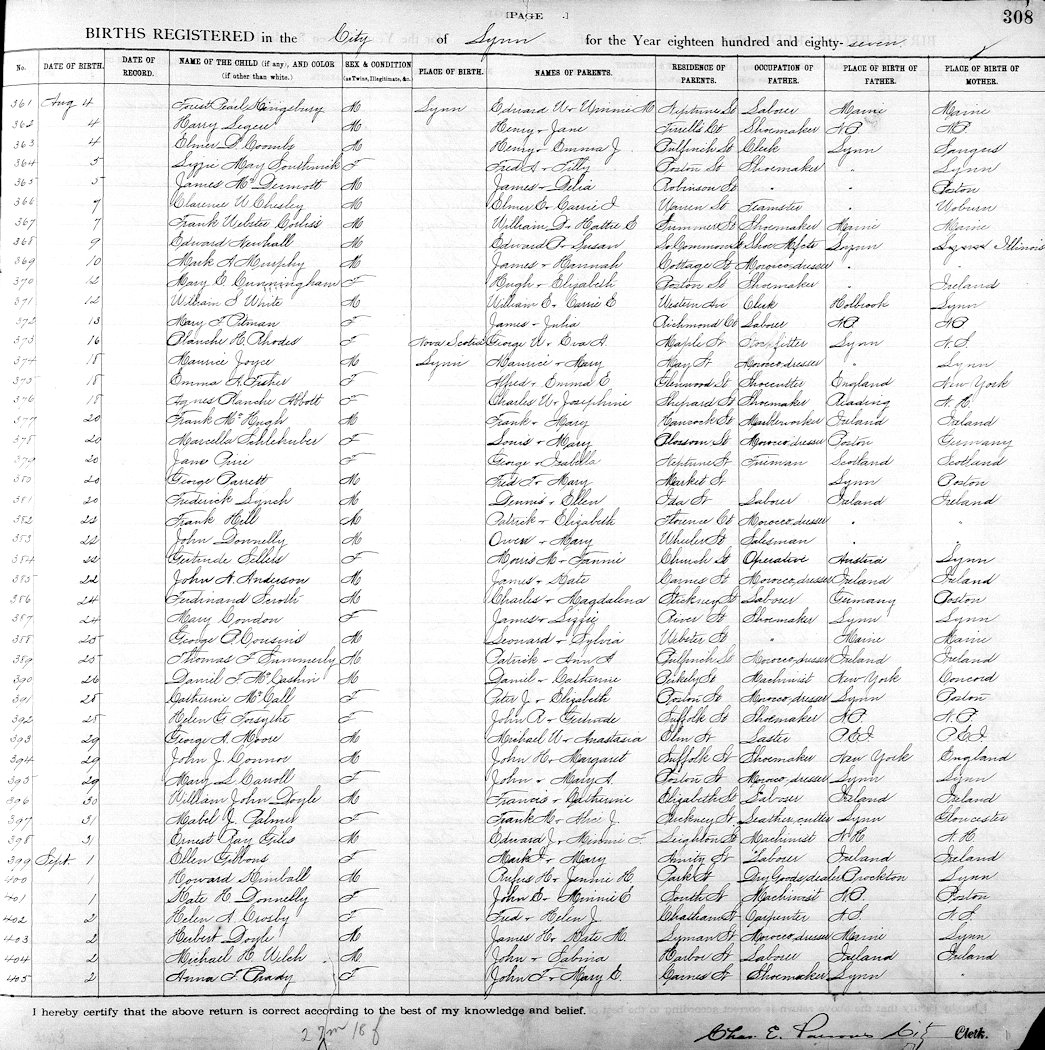 [PAGE .] 308
BIRTHS REGISTERED in the City of Lynn for the Year eighteen hundred and eighty-seven.
No. DATE OF BIRTH. DATE OF RECORD. NAME OF THE CHILD (if any), AND COLOR (if other than white.) SEX & CONDITION (as Twins, Illegitimate, &c.) PLACE OF BIRTH. NAMES OF PARENTS. RESIDENCE OF PARENTS. OCCUPATION OF FATHER. PLACE OF BIRTH OF FATHER. PLACE OF BIRTH OF MOTHER.
361 Aug 4 Forest Pearl Kingsbury M Lynn Edward W + Minnie M Neptune St Laborer Maine Maine
362 4 Harry Legere M Henry + Jane Tirell's Ct Shoemaker N.B. N.B.
363 4 Elmer D Coombs M Henry + Emma J Bulfinch St Clerk Lynn Saugus
364 5 Lizzie May Southwick F Fred A + Tilly Boston St Shoemaker " Lynn
365 5 James McDermott M James + Delia Robinson St " " Boston
366 7 Clarence W Chesley M Elmer E + Carrie I Warren St Teamster " Woburn
367 7 Frank Webster M William D + Hattie E Summer St Shoemaker Maine Maine
368 9 Edward Newhall M Edward B + Susan So Common St Shoe Mfctr Lynn Illinois
369 10 Mark A Murphy M James + Hannah Cottage St Morocco dresser " "
370 12 Mary E Cunningham F Hugh + Elizabeth Boston St Shoemaker " Ireland
371 12 William S White M William E + Carrie E Western Ave Clerk Holbrook Lynn
372 13 Mary F Pitman F James + Julia Richmond Ct Laborer N.B. N.B.
373 16 Blanche H. Rhodes F Nova Scotia George W + Eva A. Maple St Lynn N.S.
374 18 Maurice Joyce M Lynn Maurice + Mary May St Morocco dresser " Lynn
375 18 Emma A. Fisher F Alfred + Emma E Glenwood St Shoecutter England New York
376 18 Agnes Blanche Abbott F Charles W + Josephine Shepard St Shoemaker Reading N.H.
377 20 Frank McHugh M Frank + Mary Hancock St Marbleworker Ireland Ireland
378 20 Marcella Schlehuber F Louis + Mary Blossom St Morocco dresser Boston Germany
379 20 Jane Pirie F George + Isabella Neptune St Fireman Scotland Scotland
380 20 George Barrett M Fred T + Mary Market St Lynn Boston
381 20 Frederick Lynch M Dennis + Ellen Ida St Laborer Ireland Ireland
382 22 Frank Hill M Patrick + Elizabeth Florence Ct Morocco dresser " "
383 22 John Donnelly M Owen + Mary Wheeler St Salesman "
384 22 Gertrude Sellers F Morris M + Fannie Church St Operative Austria Lynn
385 22 John A. Anderson M James + Kate Carnes St Morocco dresser Ireland Ireland
386 24 Ferdinand M Charles + Magdalena Stickney St Laborer Germany Boston
387 24 Mary Condon F James + Lizzie River St Shoemaker Lynn Lynn
388 25 George P. Cousins M Leonard + Sylvia Webster St " Maine Maine
389 25 Thomas F M Patrick + Ann A Bulfinch St Morocco dresser Ireland Ireland
390 26 Daniel F McCashin M Daniel + Catherine Machinist New York Concord
391 28 Catherine McCall F Peter J + Elizabeth Boston St Morocco dresser Lynn Boston
392 28 Helen G Forsythe F John A + Gertrude Suffolk St Shoemaker N.B. N.B.
393 29 George A. Moore M Michael W + Anastasia Elm St Laster P.E.I. P.E.I.
394 29 John J. Connor M John H + Margaret Suffolk St Shoemaker New York England
395 29 Mary L Carroll F John + Mary A. Boston St Morocco dresser Lynn Lynn
396 30 William John Doyle M Francis + Catherine Elizabeth St Laborer Ireland Ireland
397 31 Mabel J. Palmer F Frank M + Alice J. Stickney St Leather cutter Lynn Gloucester
398 31 Ernest Ray Giles M Edward J + Minnie F. Leighton St Machinist N.H. N.H.
399 Sept. 1 Ellen Gibbons F Mark J + Mary Amity St Laborer Ireland Ireland
400 1 Howard Kimball M Rufus H + Jennie H Park St Dry Goods dealer Brockton Lynn
401 1 Kate H Donnelly F John E + Minnie E South St Machinist N.B. Boston
402 2 Helen A. Crosby F Fred + Helen J. Chatham St Carpenter N.S. N.S.
403 2 Herbert Doyle M James H + Kate M. Lyman St Morocco dresser Maine Lynn
404 2 Michael H Welch M John + Sabina Harbor St Laborer Ireland Ireland
405 2 Anna F Brady F John F + Mary E. Carnes St Shoemaker Lynn "
I hereby certify that the above return is correct according to the best of my knowledge and belief.
27m 18f Chas. E. Parsons City Clerk.